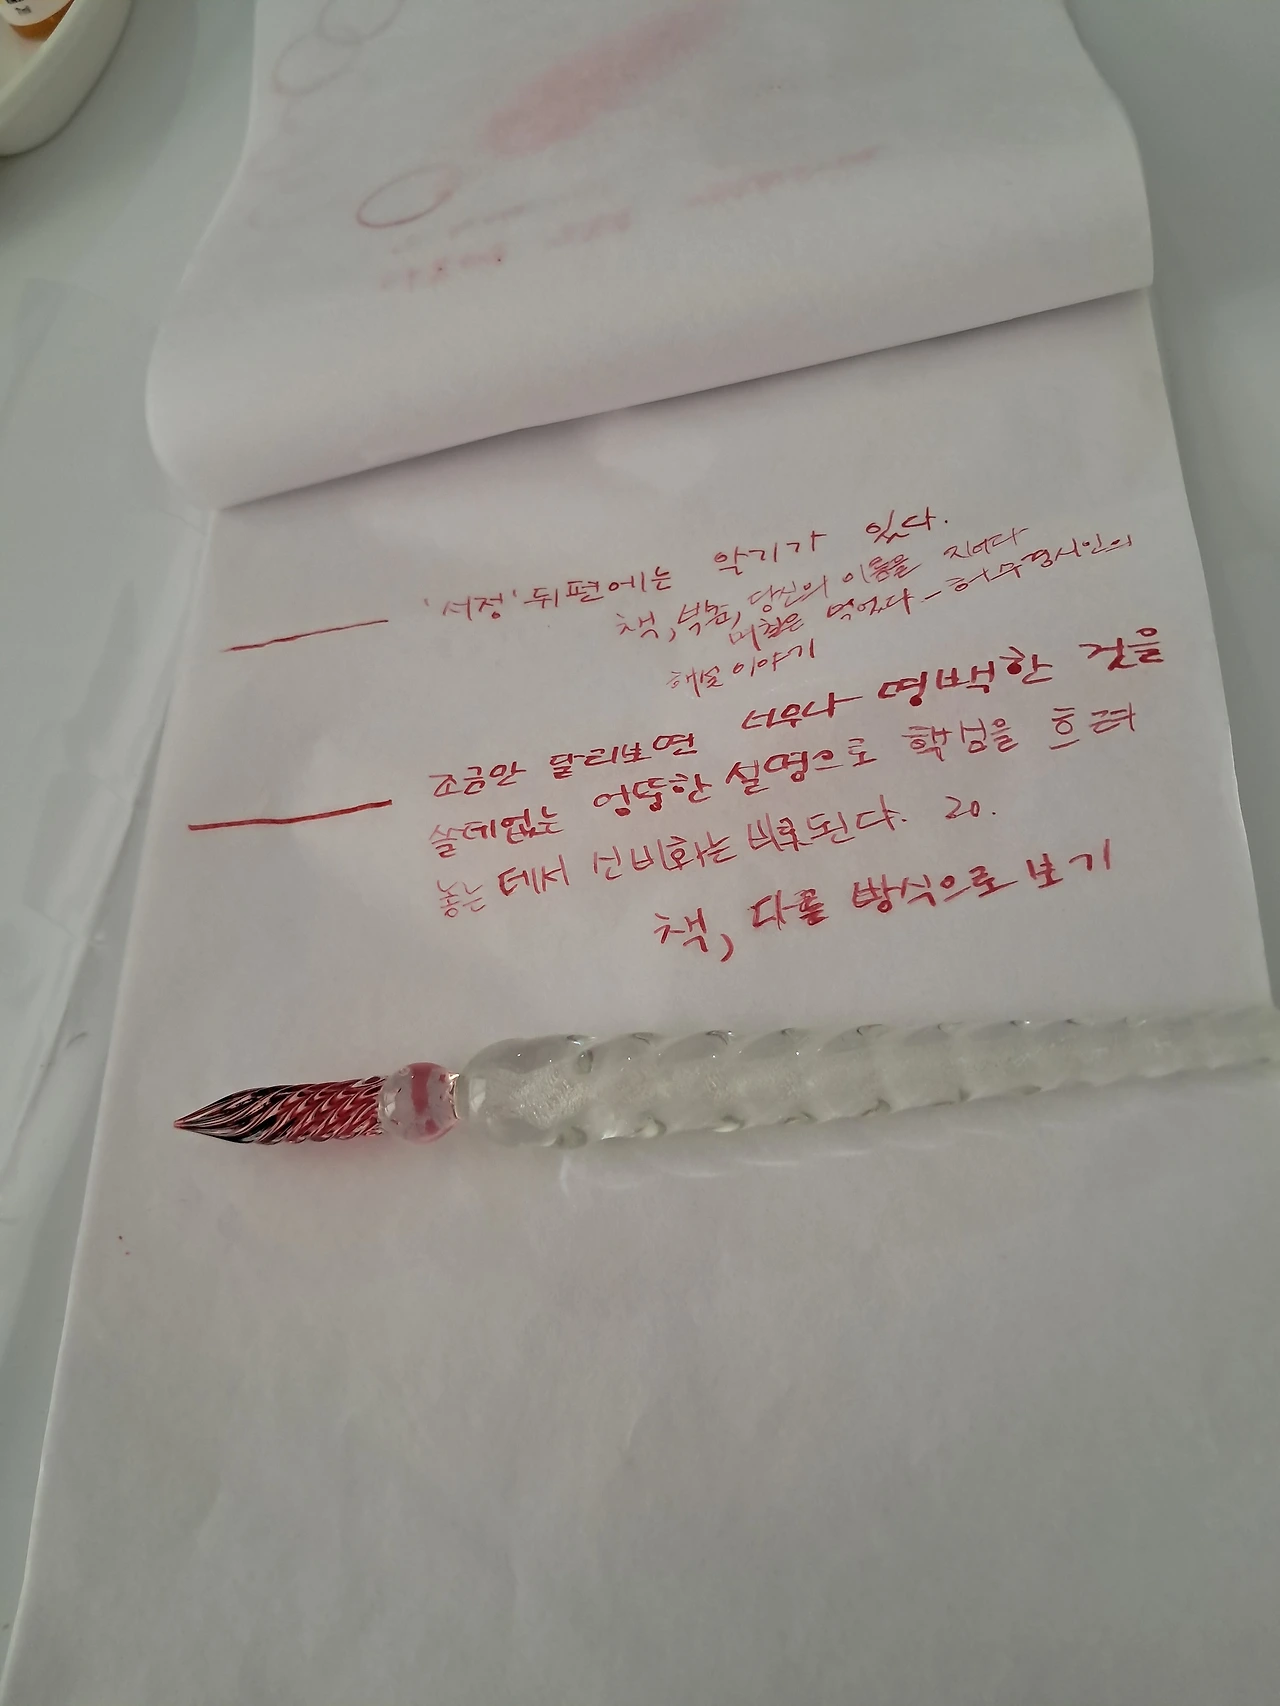 '서정' 뒤편에는 악기가 있다.
책, 박준, 당신의 이름을 지어다
며칠은 먹었다 - 허수경시인의
해설 이야기
조금만 달리보면 너무나 명백한 것을
쓸데없는 엉뚱한 설명으로 핵심을 흐려
놓는 데서 신비화는 비롯된다. 20.
책, 다른 방식으로 보기